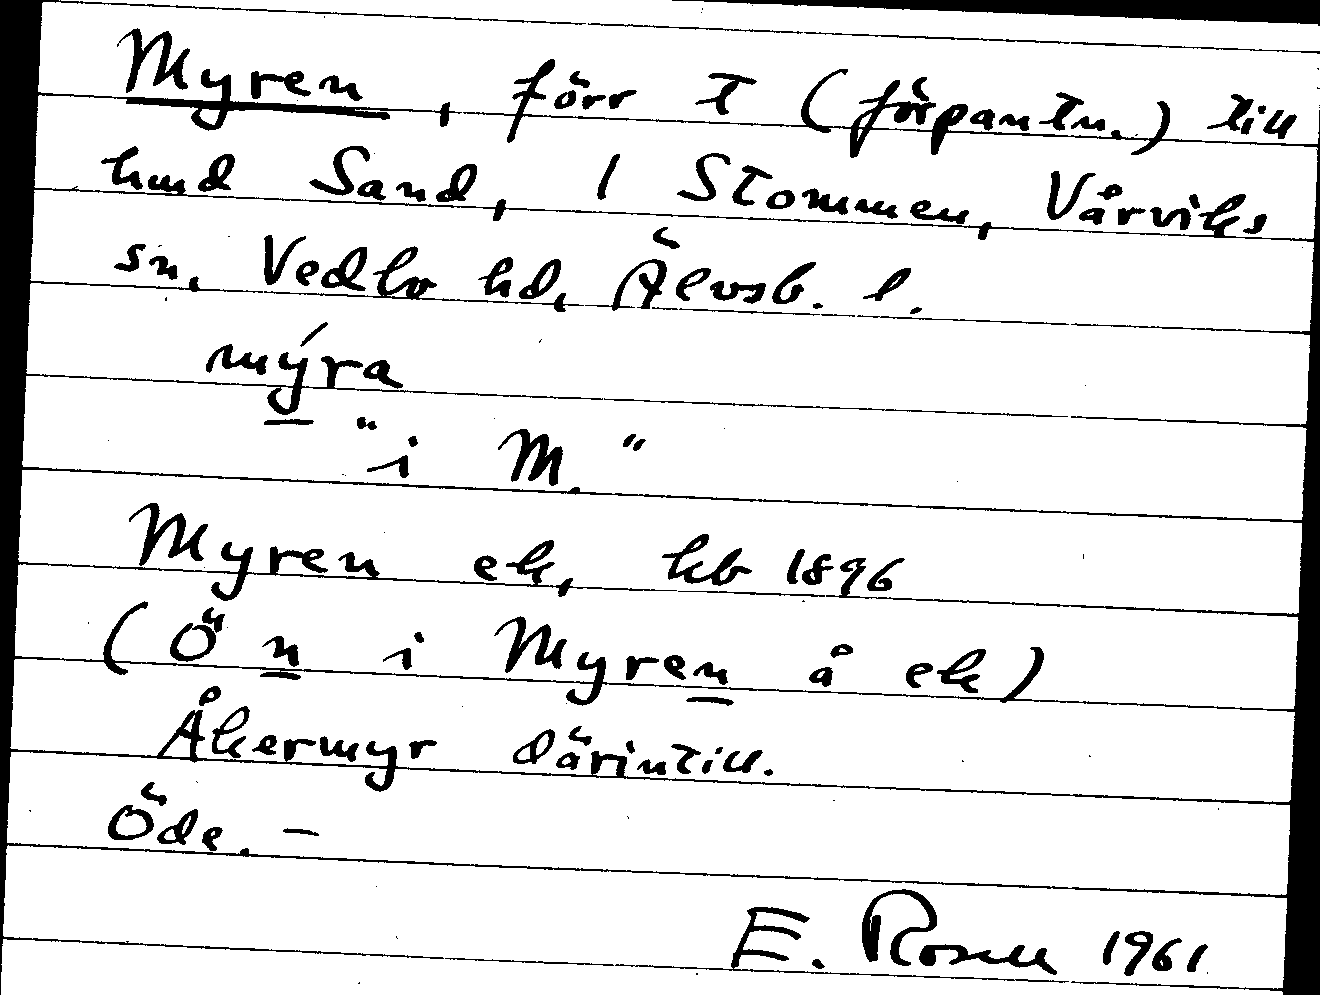 Myren, förr t (förpantn.) till
hmd Sand, 1 Stommen, Vårviks
sn. Vedbo hd, Älvsb. l.
mýra
"i M."
Myren ek, kb 1896
(Ö n i Myren å ek)
Åkermyr därintill.
Öde. –
E. Rosell 1961